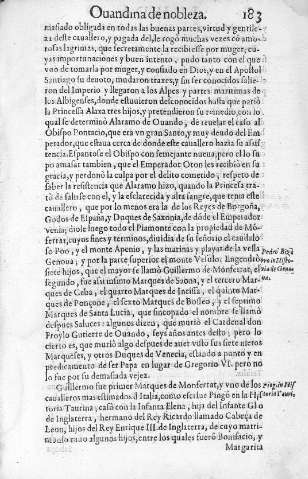 Ouandina de nobleza. 183
masiado obligada en todas las buenas partes, virtud y gentile-
za deste cauallero, y pagada del, le rogó muchas vezes có amo-
rosas lagrimas, que secretamente la recibiesse por muger, cu-
yas importunaciones y buen intento, pudo tanto con el que
vno de tomarla por muger, y confiado en Dios, y en el Apostol
Santiago su deuoto, mudaron trages, y sin ser conocidos salie-
ron del Imperio y llegaron a los Alpes y partes maritimas de
los Albigenses, donde estuuieron desconocidos hasta que pariò
la Princesa Alaxa tres hijos, y pretendieron su remedio, con lo
qual se determinò Alaramo de Ouando, de reuelar el caso al
Obispo Pontacio, que era vn gran Santo, y muy deudo del Em-
perador, que estaua cerca de donde este cauallero hazia su asis-
tencia. Espantose el Obispo con semejante nueua; pero èl lo su-
po amasar tambien, que el Emperador Oton les recibiò en su
gracia, y perdonò la culpa por el delito cometido; respeto de
saber la resistencia que Alaramo hizo, quando la Princesa tra-
tò de salirse con el, y la esclarecida y alta sangre, que tenia este
cauallero, que por lo menos era la de los Reyes de Borgoña,
Godos de España, y Duques de Saxonia, de dóde el Emperador
venia; diole luego todo el Piamonte con la propiedad de Mó-
ferrat, cuyos fines y terminos, diuidia de su señorio el caudalo-
so Poo, y el monte Apenio, y las marinas y playas de la vella
Genoua; y por la parte superior el monte Velulo. Engendrò
siete hijos, que el mayor se llamò Guillermo de Monferrat, el
segundo, fue assi mismo Marques de Suon, y el tercero Mar-
ques de Ceba, el quarto Marques de Incisa, el quinto Mar-
ques de Pençone, el sexto Marques de Bosleo, y el septimo
Marques de Santa Lucia, que trocado el nombre se llamò
despues Saluces: algunos dizen, que muriò el Cardenal don
Froylo Gutierre de Ouando, seys años antes desto, pero lo
cierto es, que muriò algo despues de auer visto sus siete nietos
Marqueses, y otros Duques de Venecia, estando a punto y en
predicamento de ser Papa en lugar de Gregorio VI. pero no
lo fue por su demasiada vejez.
Guillermo fue primer Marques de Monferrat, y vno de los
caualleros mas estimados d Italia, como escriue Pingó en la His
toria Taurina; casò con la Infanta Elena, hija del Infante Glo
de Inglaterra, hermano del Rey Ricardo llamado Cabeça de
Leon, hijos del Rey Enrique III. de Inglaterra, de cuyo matri-
monio tuuo algunos hijos, entre los quales fueró Bonifacio, y
Margarita